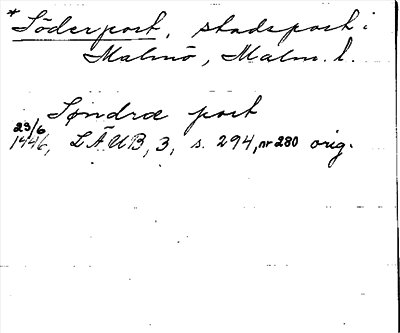 *Söderport, stadsport i
Malmö, Malm. l.
Søndræ port
23/6
1446, LÄUB, 3, s. 294, nr 280 orig.